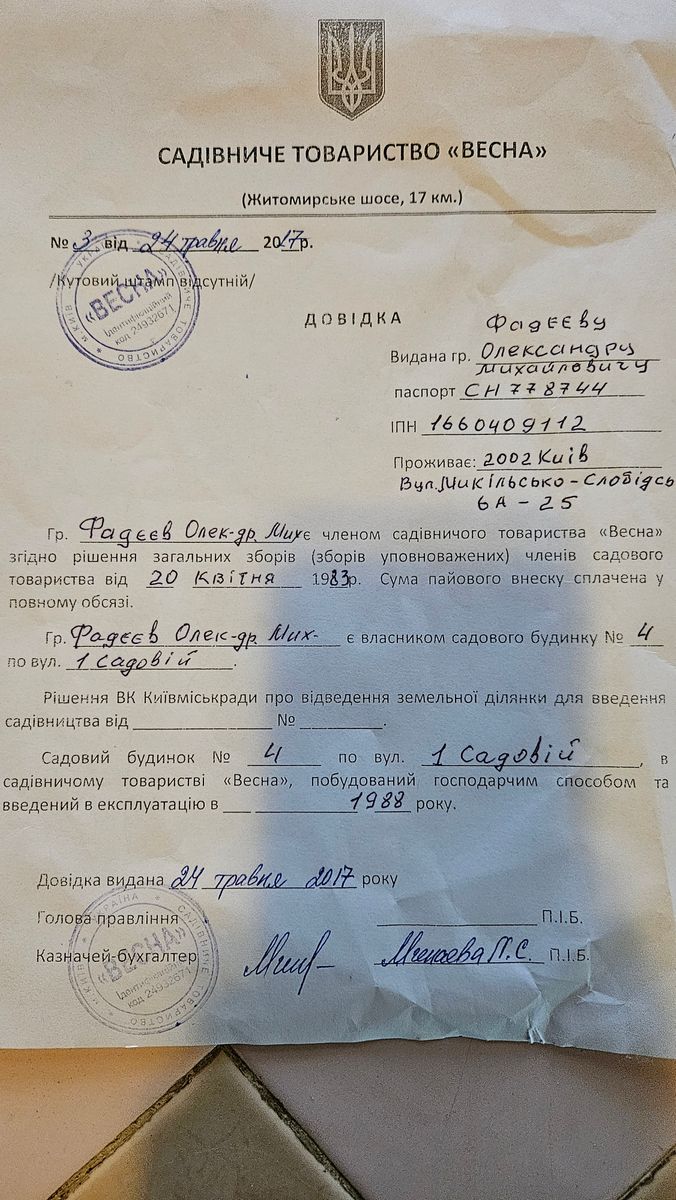 САДІВНИЧЕ ТОВАРИСТВО «ВЕСНА»
(Житомирське шосе, 17 км.)
№ 3 від 24 травня 2017р.
/Кутовий штамп відсутній/
УКРАЇНА * САДІВНИЧЕ ТОВАРИСТВО * м.КИЇВ
«ВЕСНА»
Ідентифікаційний
код 24932671
ДОВІДКА
Фадєєву
Видана гр. Олександру
Михайловичу
паспорт СН 778744
ІПН 1660409112
Проживає: 2002 Київ
Вул. Микільсько-Слобідсь
6А - 25
Гр. Фадєєв Олек-др. Мих є членом садівничого товариства «Весна»
згідно рішення загальних зборів (зборів уповноважених) членів садового
товариства від 20 Квітня 1983р. Сума пайового внеску сплачена у
повному обсязі.
Гр. Фадєєв Олек-др. Мих- є власником садового будинку № 4
по вул. 1 Садовій.
Рішення ВК Київміськради про відведення земельної ділянки для введення
садівництва від № .
Садовий будинок № 4 по вул. 1 Садовій, в
садівничому товаристві «Весна», побудований господарчим способом та
введений в експлуатацію в 1988 року.
Довідка видана 24 травня 2017 року
Голова правління П.І.Б.
Казначей-бухгалтер П.С. П.І.Б.
УКРАЇНА * САДІВНИЧЕ ТОВАРИСТВО * м.КИЇВ
«ВЕСНА»
Ідентифікаційний
код 24932671